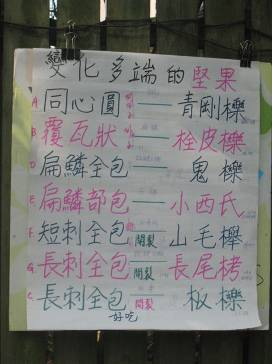 變化多端的堅果
A 同心圓——青剛櫟
B 覆瓦狀——栓皮櫟
D 扁鱗全包——鬼櫟
E 扁鱗部包——小西氏
F 短刺全包 開裂 山毛櫸
G 長刺全包 開裂 長尾栲
C 長刺全包 開裂 板櫟
好吃